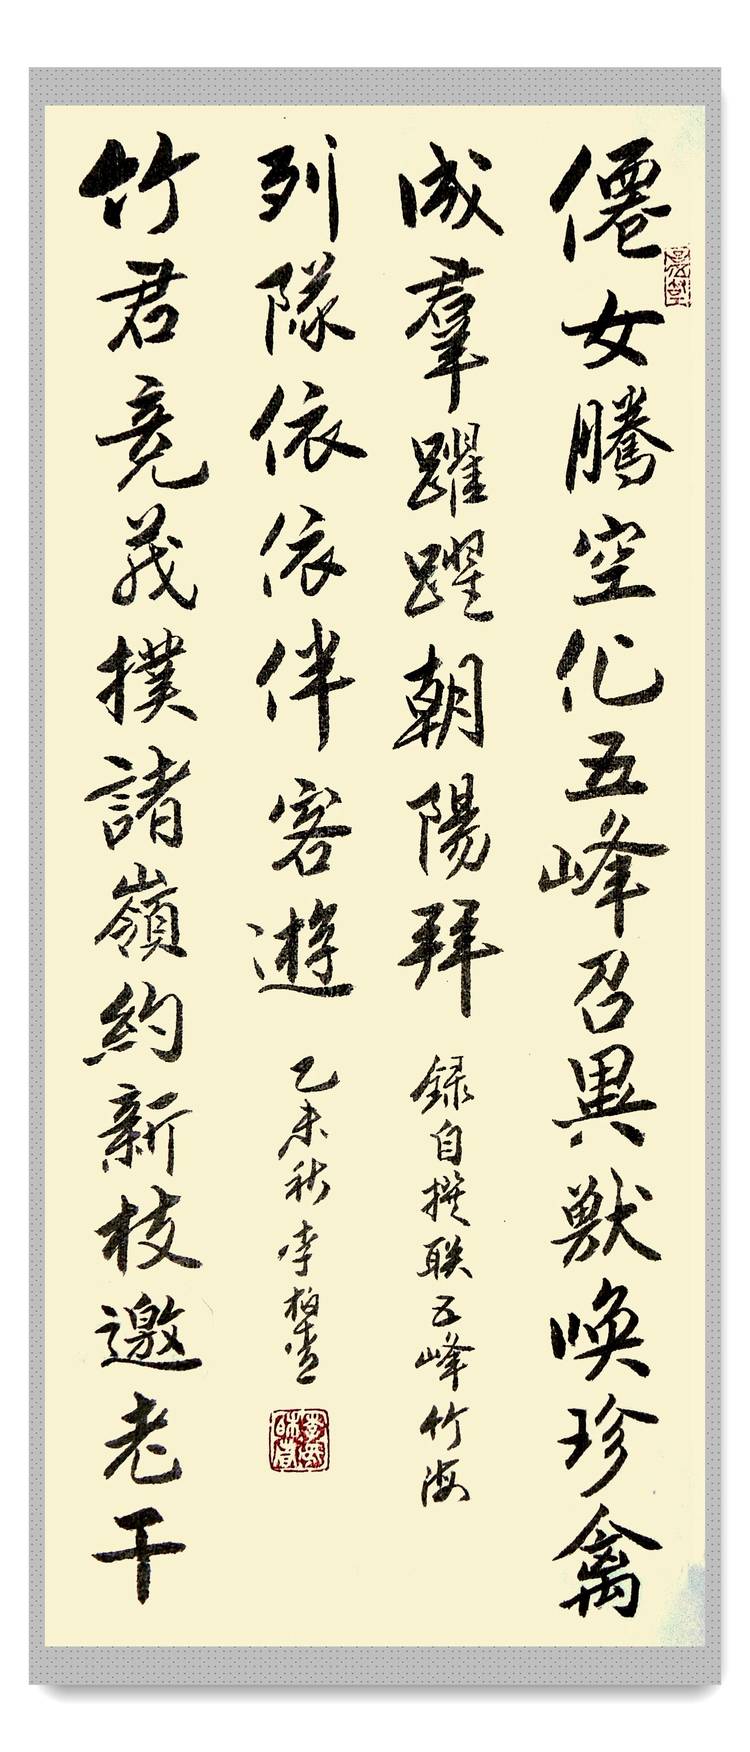 僊女騰空化五峰召異獸喚珍禽
成羣躍躍朝陽拜
録自撰联五峰竹海
竹君竞茂撲諸嶺約新枝邀老干
列隊依依伴客遊
乙未秋李柏